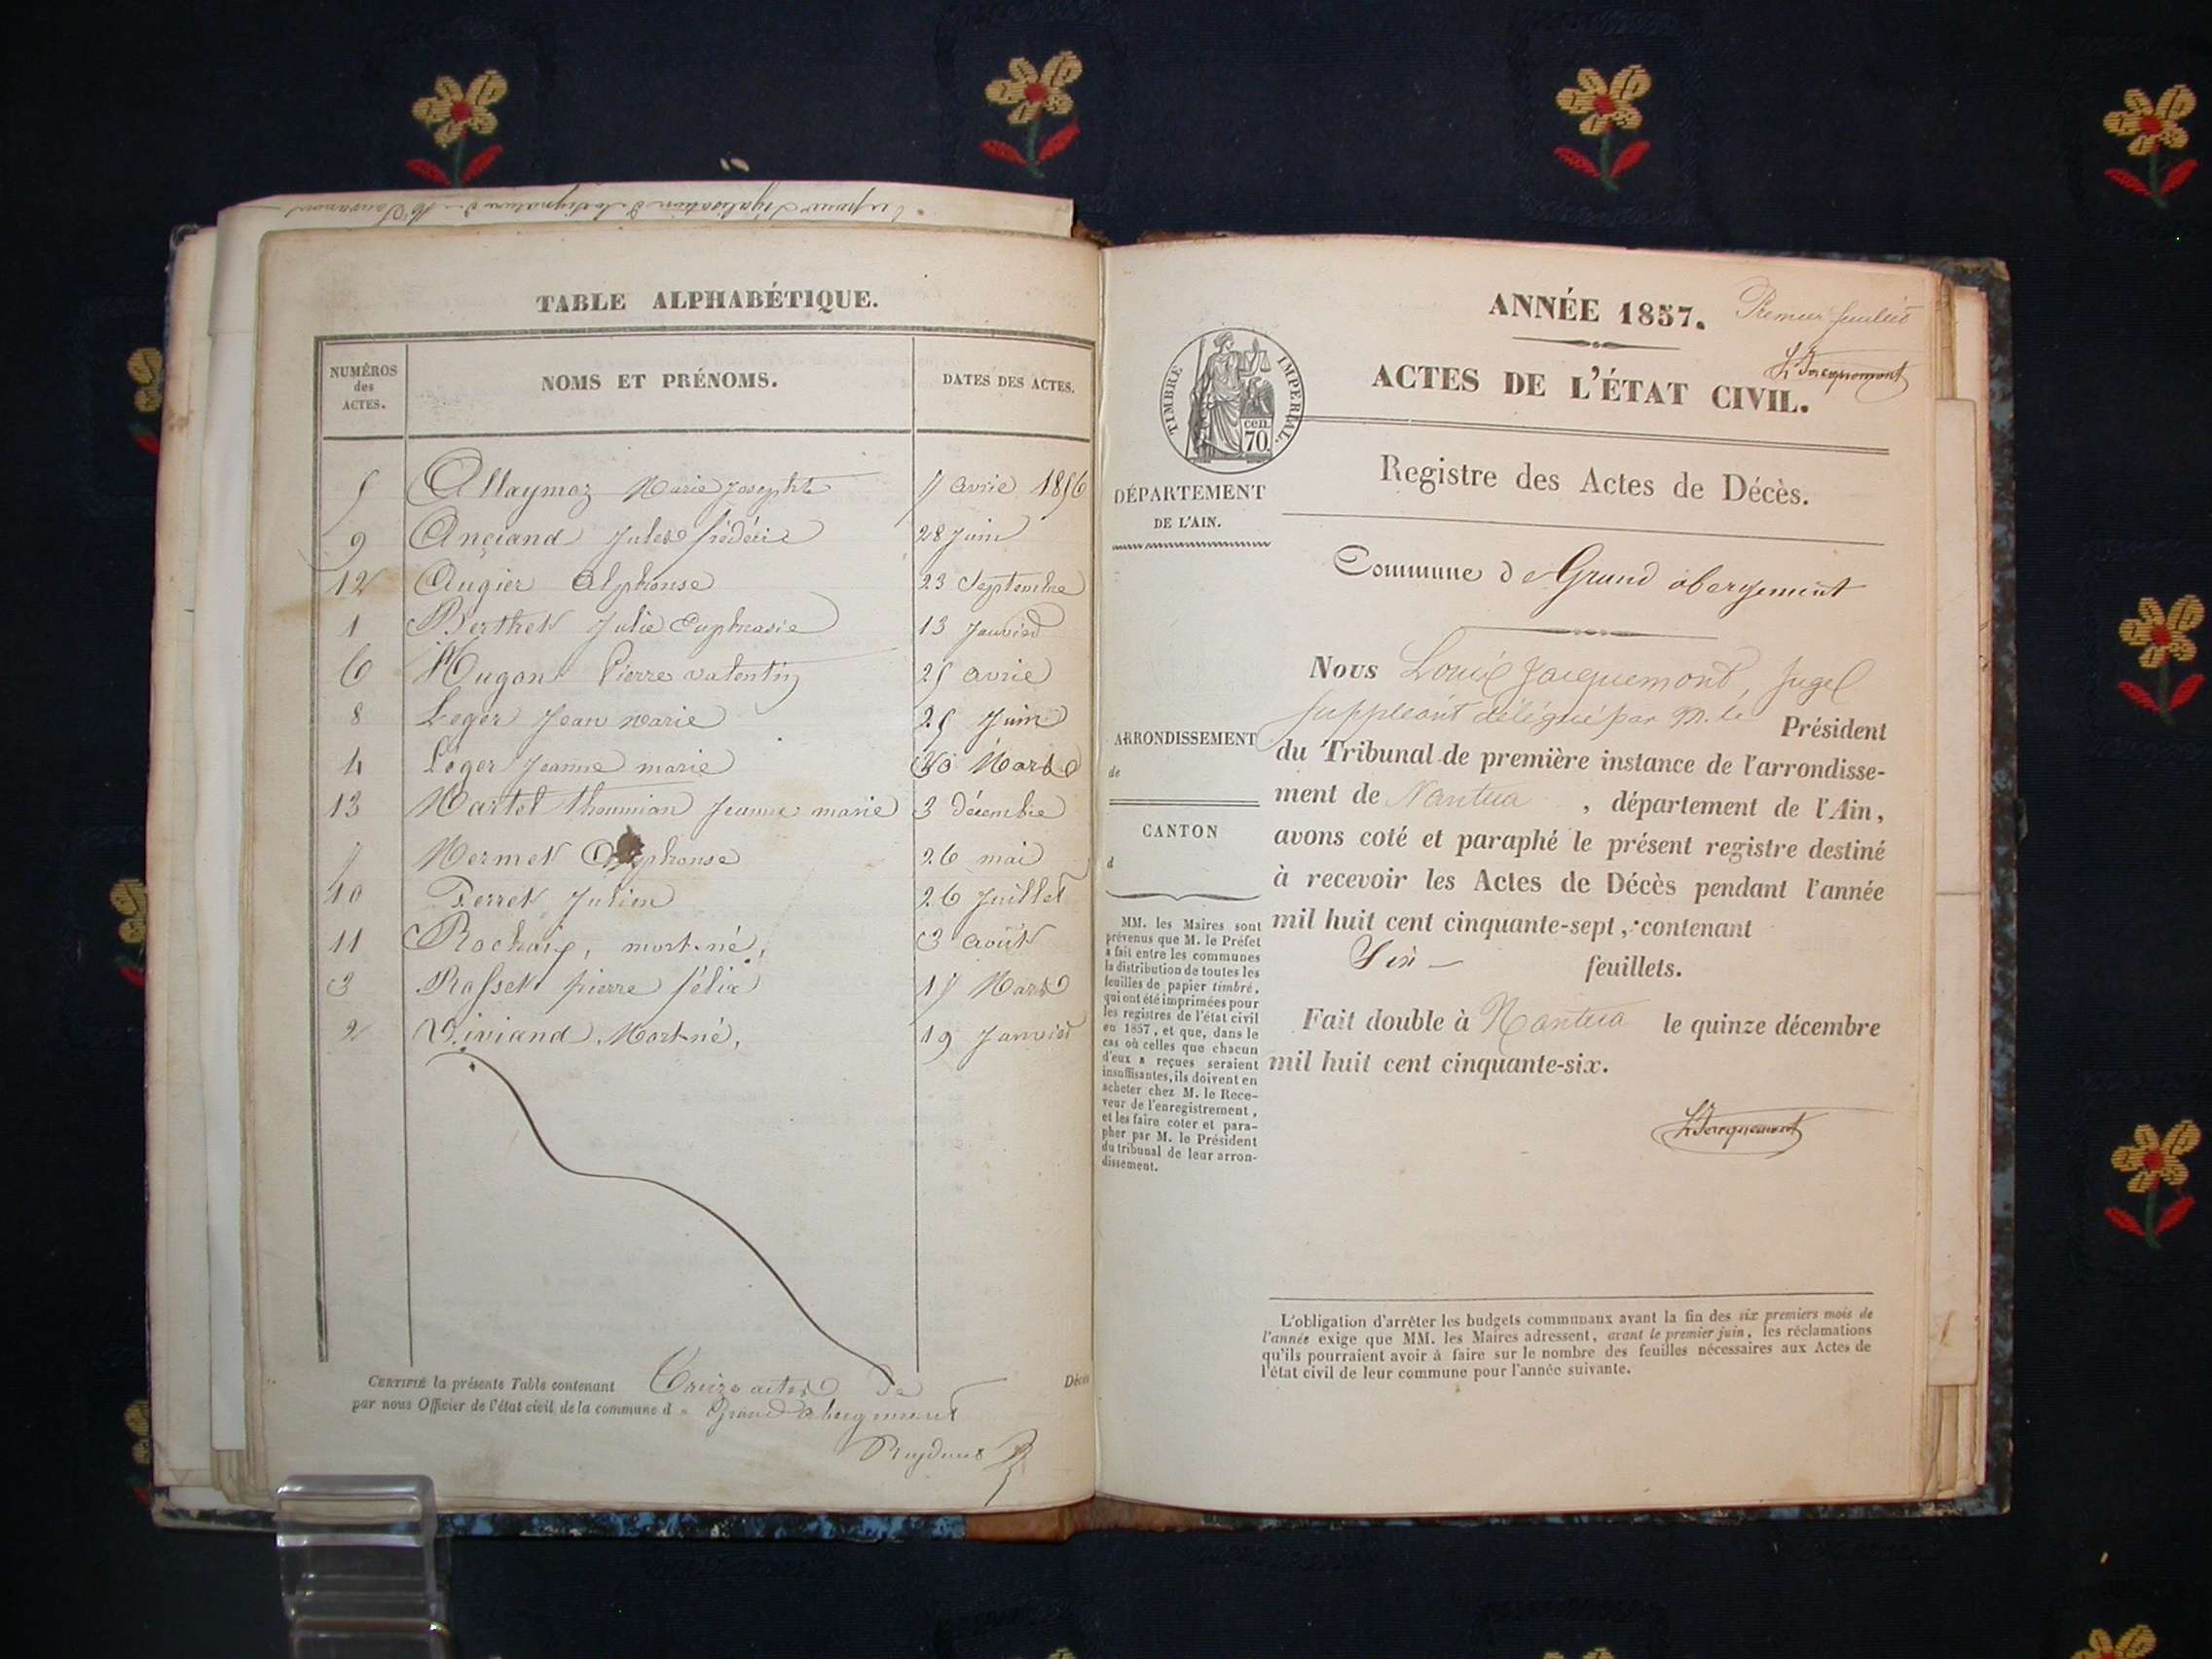 TABLE ALPHABÉTIQUE.
NUMÉROS des ACTES. NOMS ET PRÉNOMS. DATES DES ACTES.
5 Allaymoz Marie Josephte 7 avril 1856
9 Anciand Jules frédéric 28 Juin
12 Augier Alphonse 23 Septembre
1 Berthet Julie Euphrasie 13 Janvier
6 Hugon Pierre valentin 25 avril
8 Leger Jean marie 25 Juin
4 Léger Jeanne marie 30 Mars
13 Martel thoumian Jeanne marie 3 décembre
7 Mermet Alphonse 26 mai
10 Perret Julien 26 Juillet
11 Rochaix, mort-né, 3 août
3 Rosset pierre félix 17 Mars
2 Viviand Mort-né, 19 Janvier
CERTIFIÉ la présente Table contenant Treize actes de Décès
par nous Officier de l'état civil de la commune d e Grand abergement
ANNÉE 1857. Premier feuillet
LJacquemont
ACTES DE L'ÉTAT CIVIL.
TIMBRE IMPERIAL.
70 cen.
Registre des Actes de Décès.
DÉPARTEMENT
DE L'AIN.
Commune de Grand abergement
ARRONDISSEMENT
de
CANTON
d
MM. les Maires sont
prévenus que M. le Préfet
a fait entre les communes
la distribution de toutes les
feuilles de papier timbré,
qui ont été imprimées pour
les registres de l'état civil
en 1857, et que, dans le
cas où celles que chacun
d'eux a reçues seraient
insuffisantes, ils doivent en
acheter chez M. le Rece-
veur de l'enregistrement,
et les faire coter et para-
pher par M. le Président
du tribunal de leur arron-
dissement.
Nous Louis Jacquemont, Juge
suppléant délégué par M. le Président
du Tribunal de première instance de l'arrondisse-
ment de Nantua , département de l'Ain,
avons coté et paraphé le présent registre destiné
à recevoir les Actes de Décès pendant l'année
mil huit cent cinquante-sept, contenant
Six feuillets.
Fait double à Nantua le quinze décembre
mil huit cent cinquante-six.
LJacquemont
L'obligation d'arrêter les budgets communaux avant la fin des six premiers mois de
l'année exige que MM. les Maires adressent, avant le premier juin, les réclamations
qu'ils pourraient avoir à faire sur le nombre des feuilles nécessaires aux Actes de
l'état civil de leur commune pour l'année suivante.